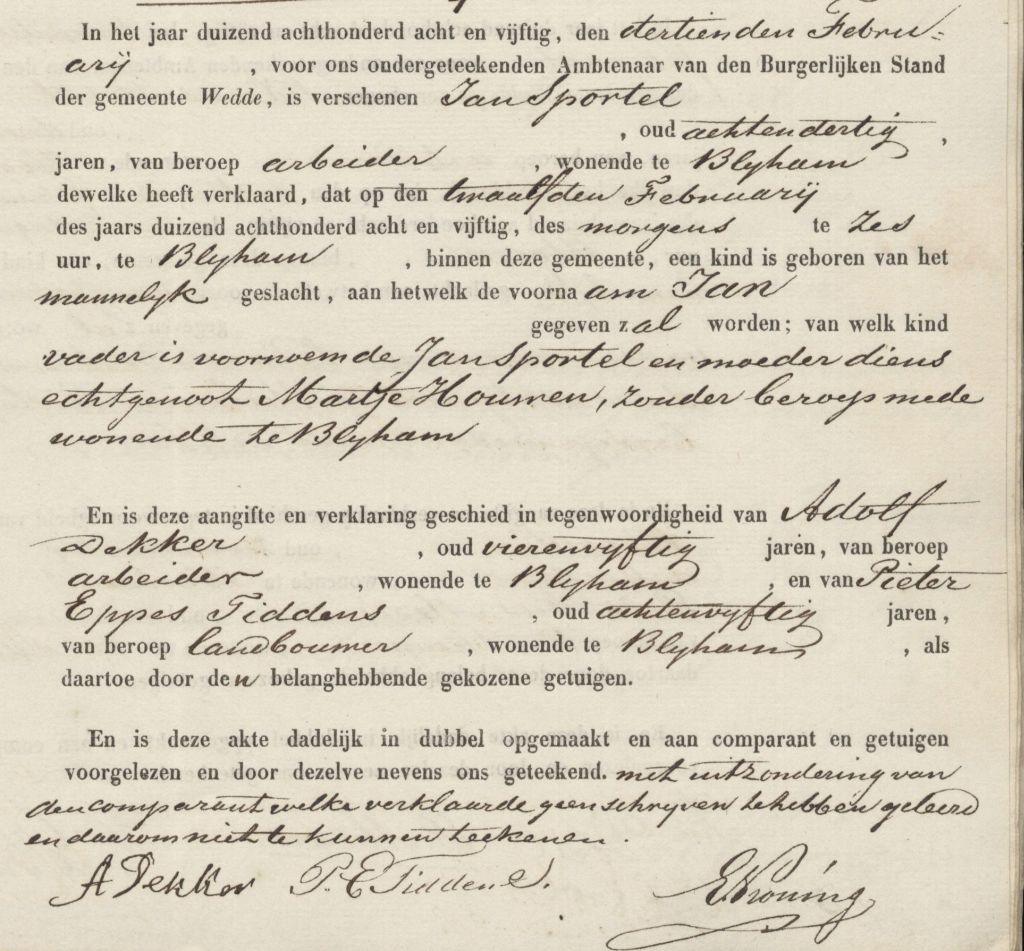 In het jaar duizend achthonderd acht en vijftig, den dertienden Febru=
arij , voor ons ondergeteekenden Ambtenaar van den Burgerlijken Stand
der gemeente Wedde, is verschenen Jan Sportel
, oud achtendertig ,
jaren, van beroep arbeider , wonende te Blyham
dewelke heeft verklaard, dat op den twaalfden Februarij
des jaars duizend achthonderd acht en vijftig, des morgens te zes
uur, te Blyham , binnen deze gemeente, een kind is geboren van het
mannelyk geslacht, aan hetwelk de voornaam Jan
gegeven zal worden; van welk kind
vader is voornoemde Jan Sportel en moeder diens
echtgenoot Martje Houwen, zonder beroep mede
wonende te Blyham
En is deze aangifte en verklaring geschied in tegenwoordigheid van Adolf
Dekker , oud vierenvyftig jaren, van beroep
arbeider , wonende te Blyham , en van Pieter
Eppes Tiddens , oud achtenvyftig jaren,
van beroep landbouwer , wonende te Blyham , als
daartoe door den belanghebbende gekozene getuigen.
En is deze akte dadelijk in dubbel opgemaakt en aan comparant en getuigen
voorgelezen en door dezelve nevens ons geteekend. met uitzondering van
den comparant welke verklaarde geen schryven te hebben geleerd
en daarom niet te kunnen teekenen.
A Dekker P. E Tiddens.